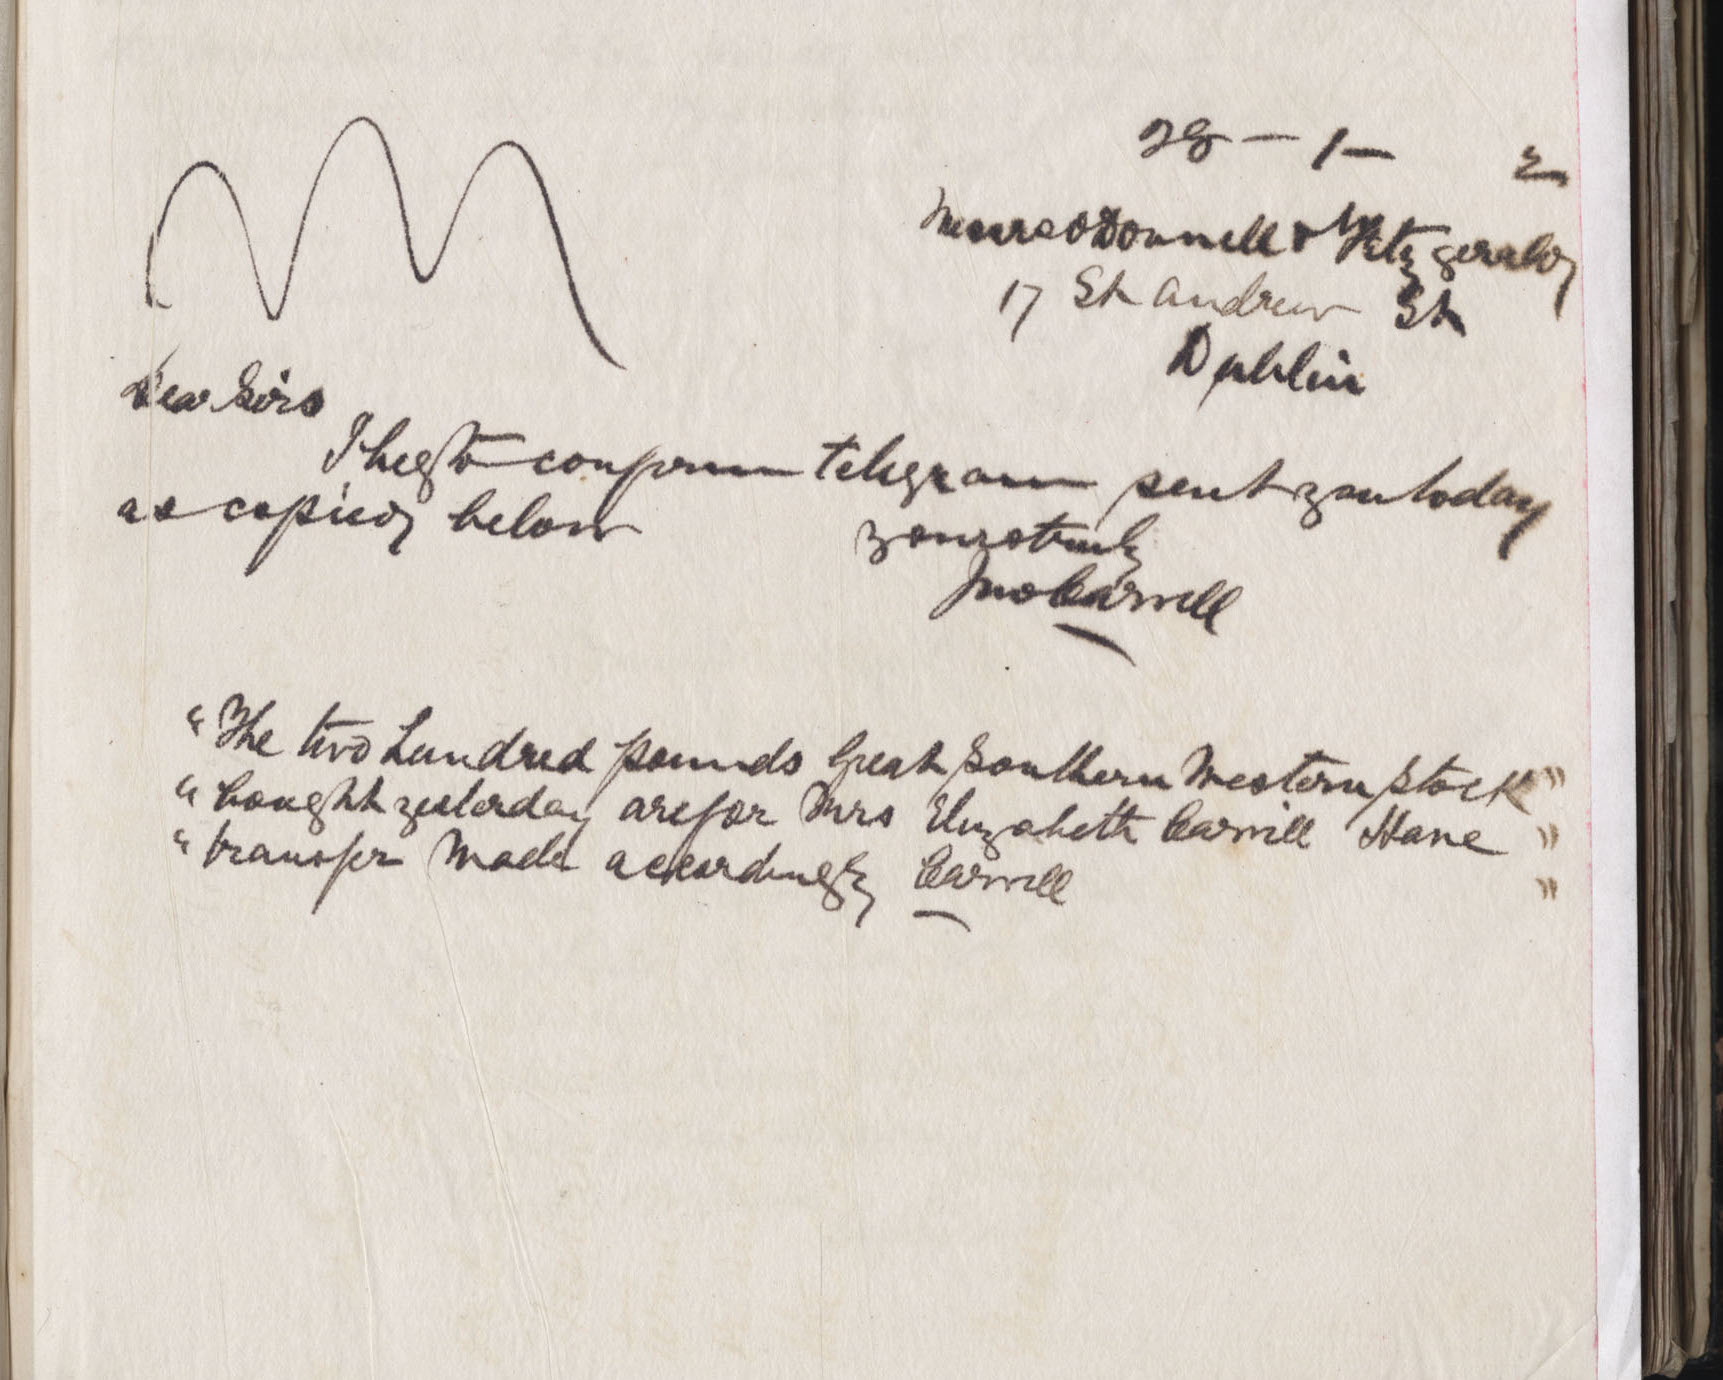 28 – 1 – 2
Messrs O Donnell & Fitzgerald
17 St Andrew St
Dublin
Dear Sirs
I beg to confirm telegram sent you today
as copied below
yours truly
Jno Carvill
"The two hundred pounds Great Southern Western Stock"
"bought yesterday are for Mrs Elizabeth Carvill Have "
"transfer made accordingly Carvill "